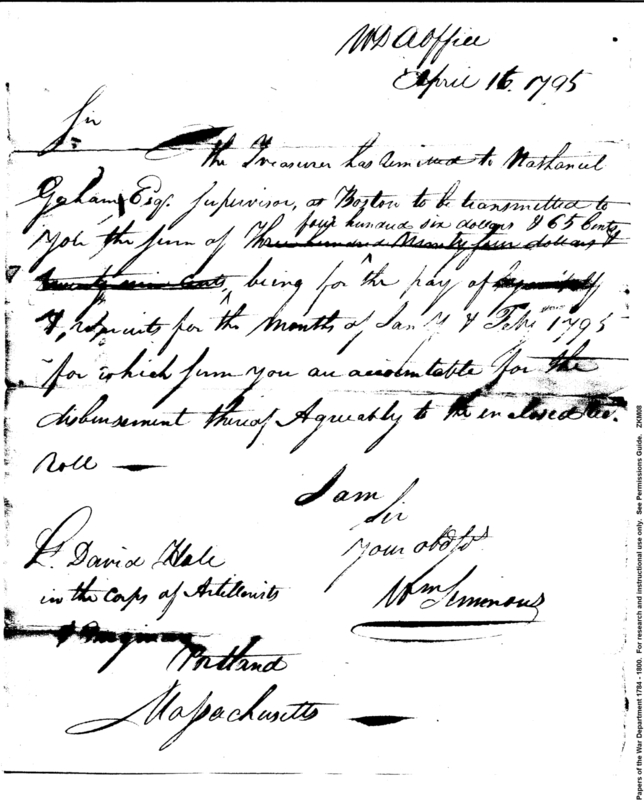 WD A Office
April 16. 1795
Sir
the Treasurer has remitted to Nathaniel
Goham Esqr. Supervisor, at Boston to be transmitted to
four hundred six dollars & 65 Cents
you the sum of three hundred Ninety four dollars &
twenty nine cents, being for the pay of
recruits for the months of Jany & Feby 1795
for which sum you are accountable for the
disbursement thereof Agreeably to the enclosed
roll
I am
Sir
your obd St
Wm Simmons
Lt. David Hale
in the Corps of Artillerists
& Engineers
Portland
Massachusetts
Papers of the War Department 1784 - 1800. For research and instructional use only. See Permissions Guide. ZKM08